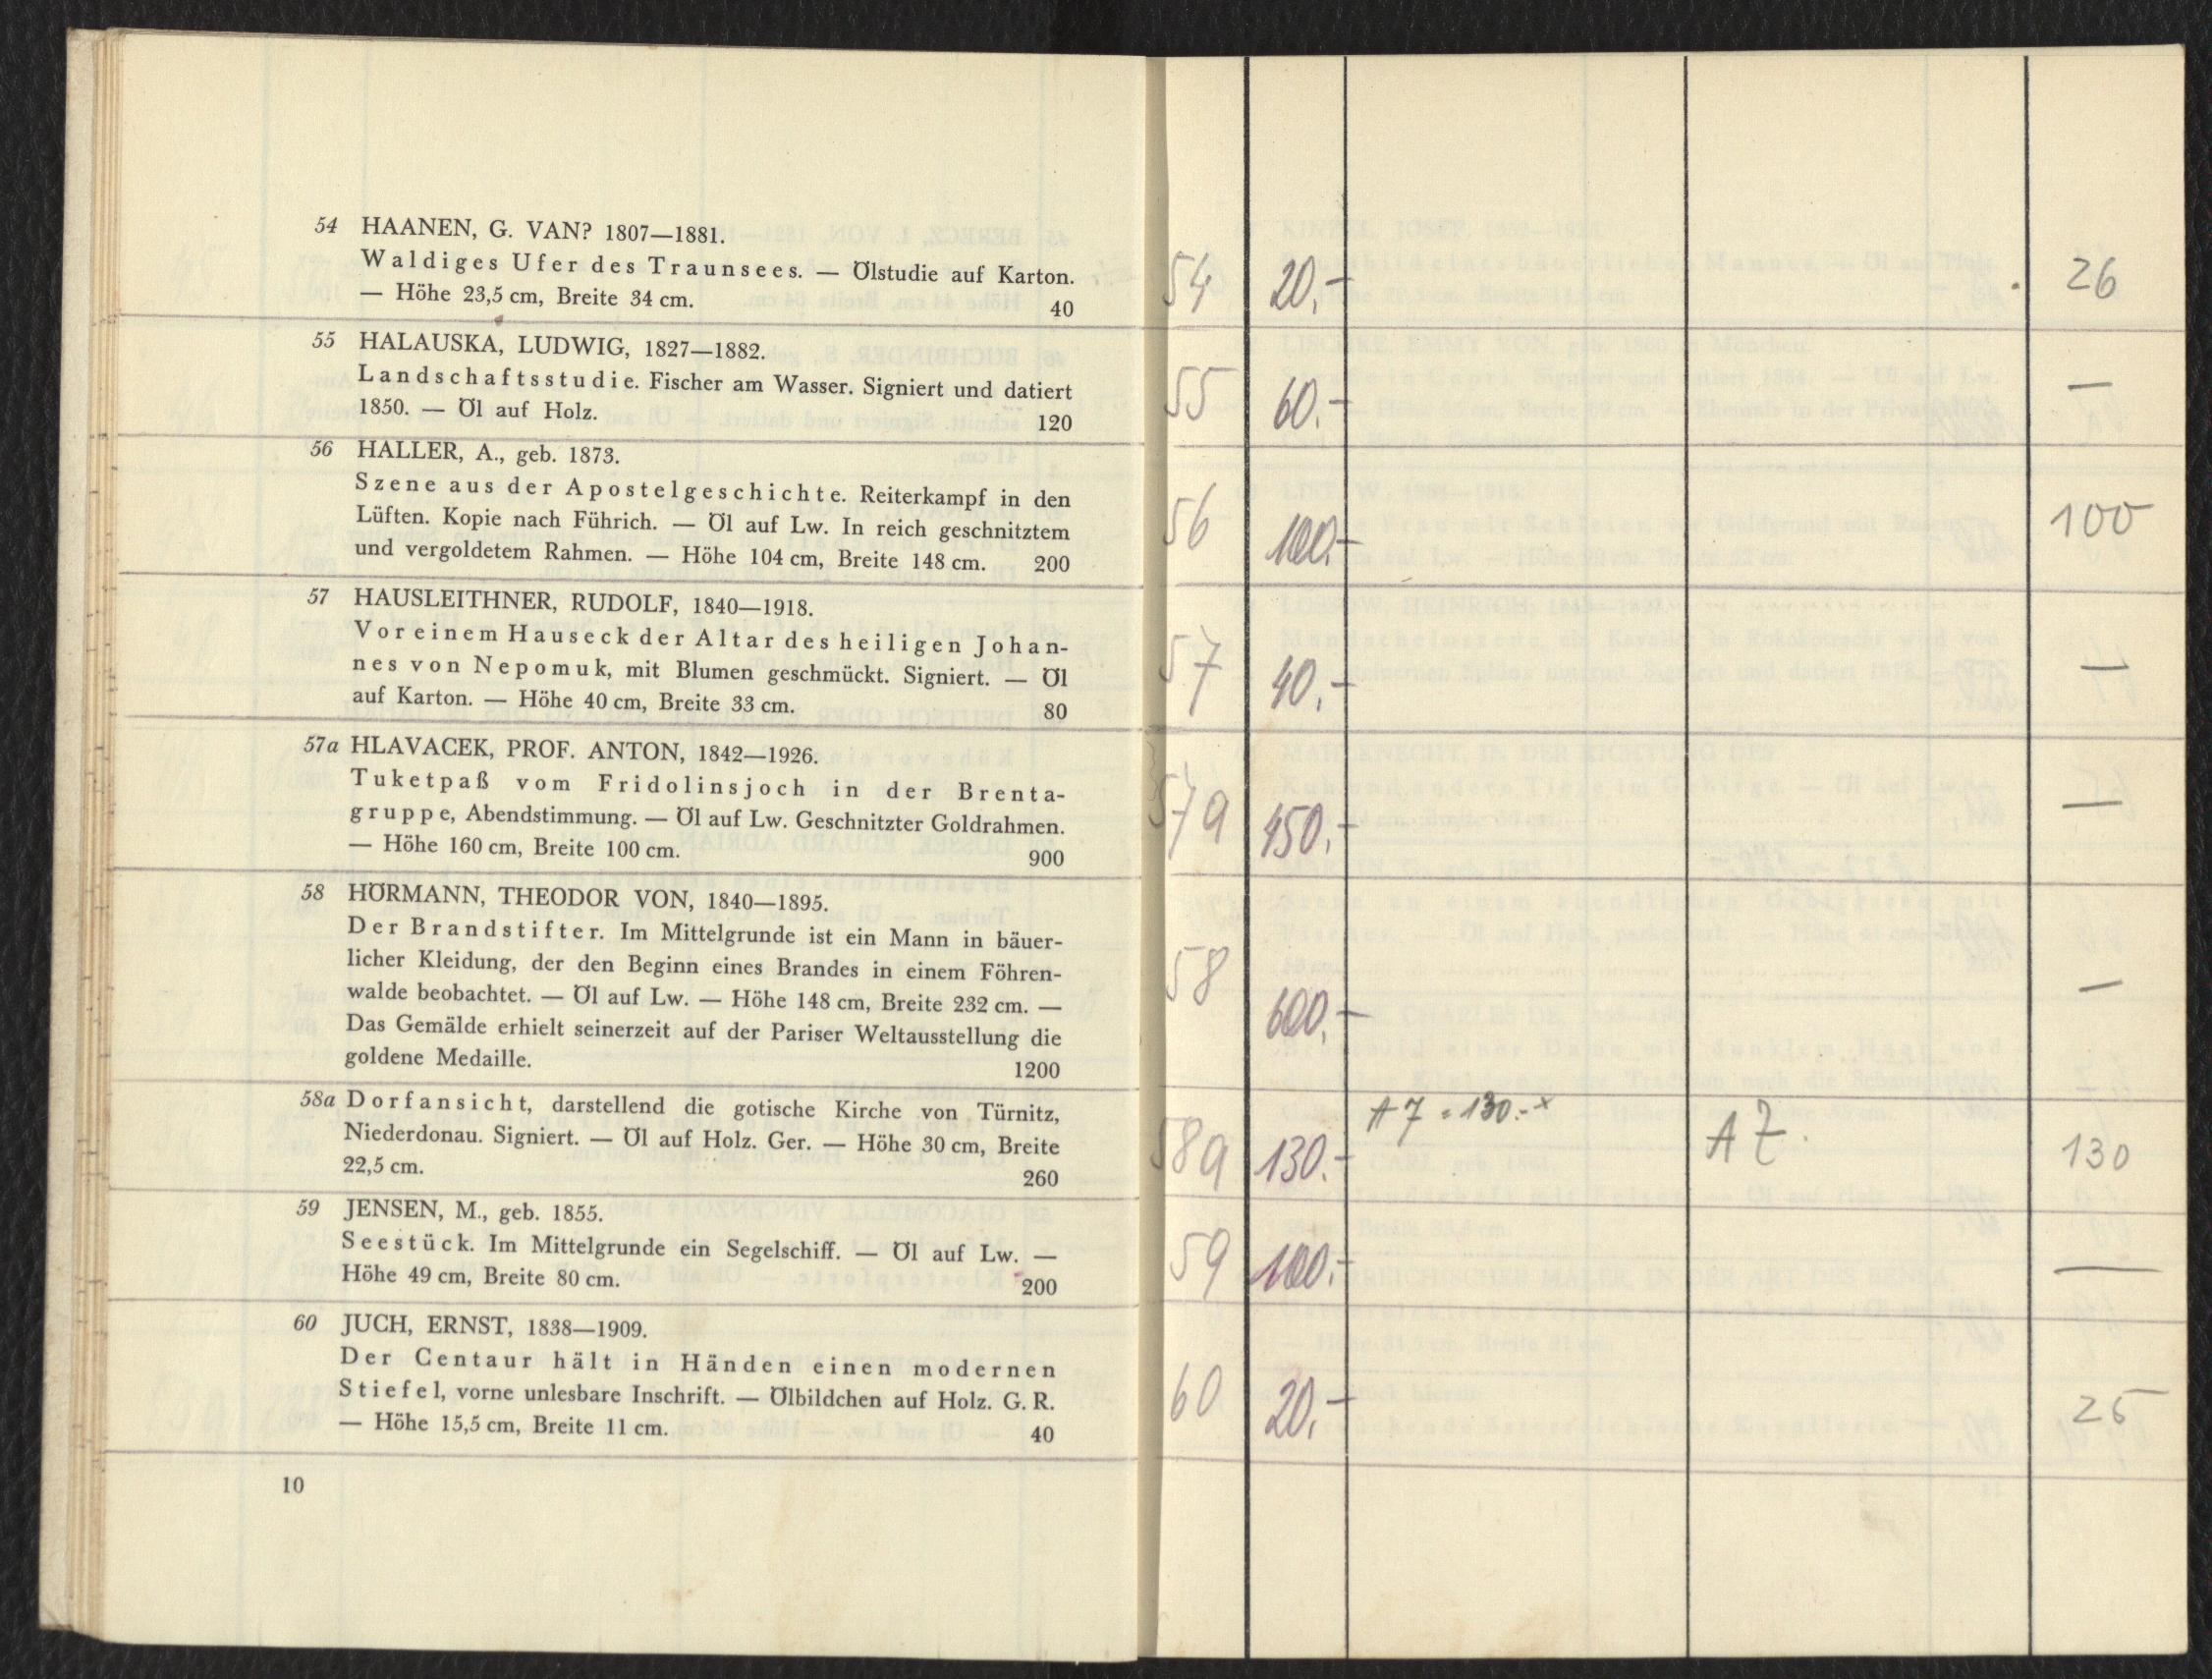 54 HAANEN, G. VAN? 1807—1881.
Waldiges Ufer des Traunsees. — Ölstudie auf Karton.
— Höhe 23,5 cm, Breite 34 cm. 40
55 HALAUSKA, LUDWIG, 1827—1882.
Landschaftsstudie. Fischer am Wasser. Signiert und datiert
1850. — Öl auf Holz. 120
56 HALLER, A., geb. 1873.
Szene aus der Apostelgeschichte. Reiterkampf in den
Lüften. Kopie nach Führich. — Öl auf Lw. In reich geschnitztem
und vergoldetem Rahmen. — Höhe 104 cm, Breite 148 cm. 200
57 HAUSLEITHNER, RUDOLF, 1840—1918.
Vor einem Hauseck der Altar des heiligen Johan-
nes von Nepomuk, mit Blumen geschmückt. Signiert. — Öl
auf Karton. — Höhe 40 cm, Breite 33 cm. 80
57a HLAVACEK, PROF. ANTON, 1842—1926.
Tuketpaß vom Fridolinsjoch in der Brenta-
gruppe, Abendstimmung. — Öl auf Lw. Geschnitzter Goldrahmen.
— Höhe 160 cm, Breite 100 cm. 900
58 HÖRMANN, THEODOR VON, 1840—1895.
Der Brandstifter. Im Mittelgrunde ist ein Mann in bäuer-
licher Kleidung, der den Beginn eines Brandes in einem Föhren-
walde beobachtet. — Öl auf Lw. — Höhe 148 cm, Breite 232 cm. —
Das Gemälde erhielt seinerzeit auf der Pariser Weltausstellung die
goldene Medaille. 1200
58a Dorfansicht, darstellend die gotische Kirche von Türnitz,
Niederdonau. Signiert. — Öl auf Holz. Ger. — Höhe 30 cm, Breite
22,5 cm. 260
59 JENSEN, M., geb. 1855.
Seestück. Im Mittelgrunde ein Segelschiff. — Öl auf Lw. —
Höhe 49 cm, Breite 80 cm. 200
60 JUCH, ERNST, 1838—1909.
Der Centaur hält in Händen einen modernen
Stiefel, vorne unlesbare Inschrift. — Ölbildchen auf Holz. G. R.
— Höhe 15,5 cm, Breite 11 cm. 40
10
54 20,- 26
55 60.- —
56 100.- 100
57 40.- —
57a 450.- —
58 600.- —
58a 130.- A 7 = 130.- x A 7. 130
59 100.- —
60 20,- 25